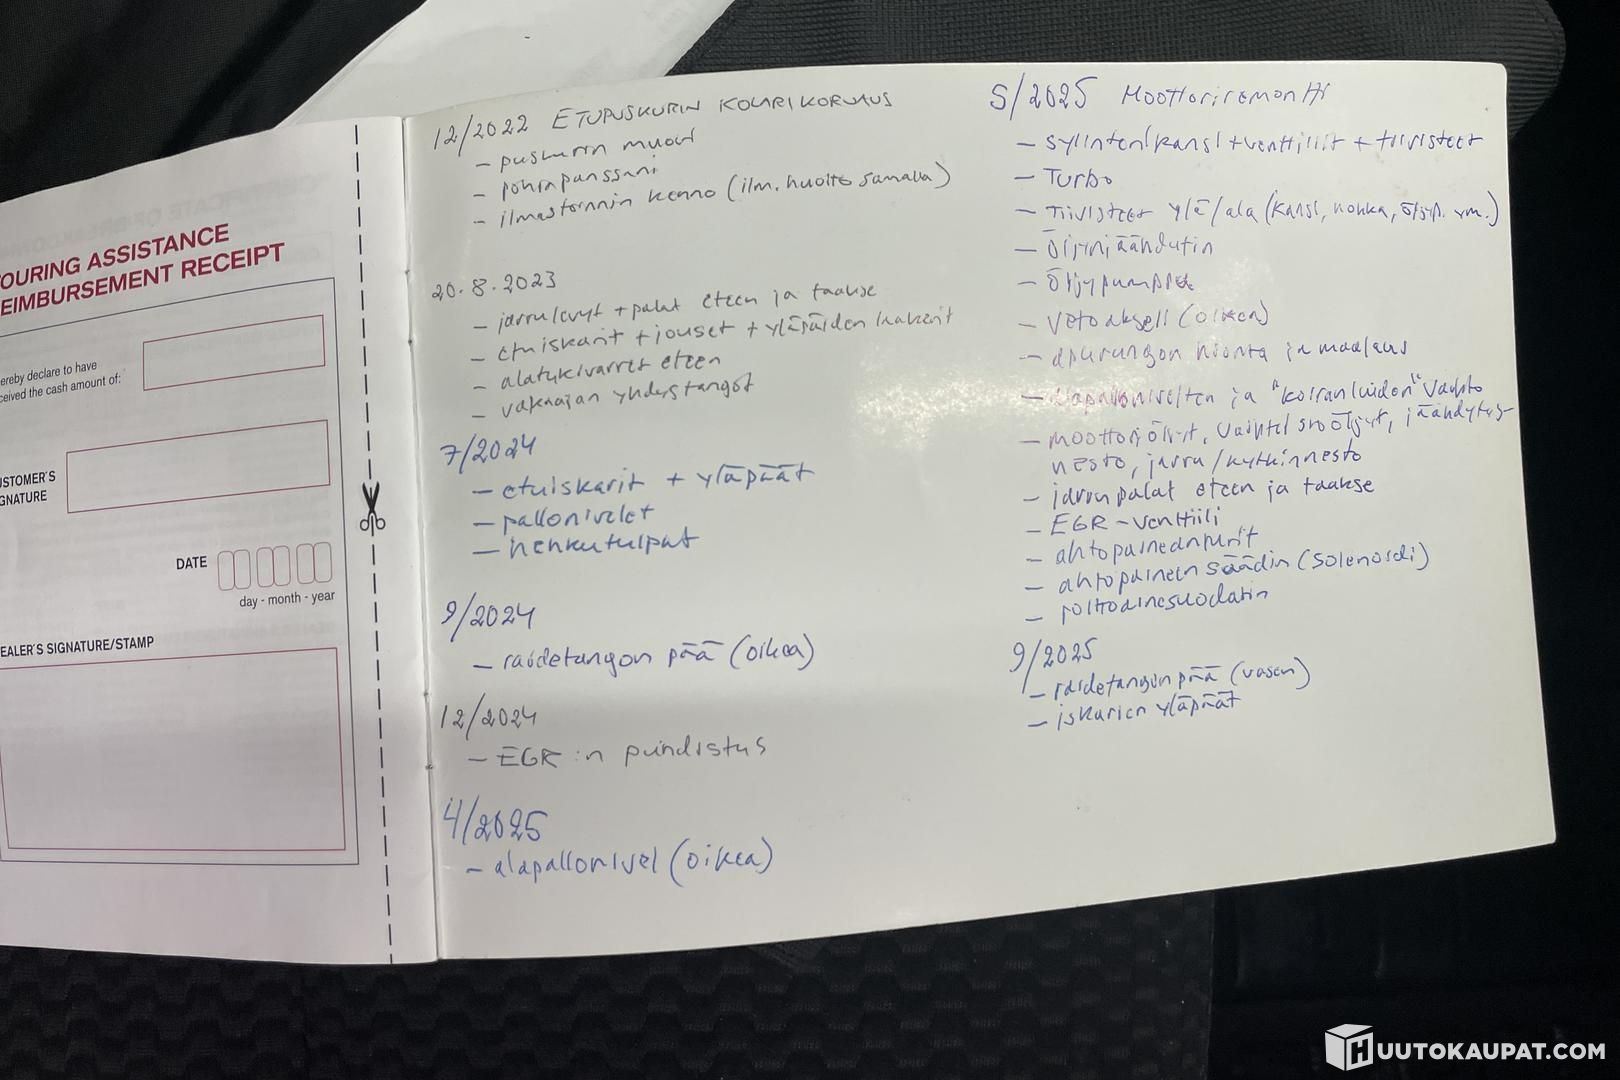 OURING ASSISTANCE
EIMBURSEMENT RECEIPT
ereby declare to have
ceived the cash amount of:
USTOMER'S
GNATURE
DATE
day - month - year
EALER'S SIGNATURE/STAMP
12/2022 ETUPUSKURIN KOLARIKORJAUS
- puskurin muovi
- pohjapanssari
- ilmastoinnin kenno (ilm. huolto samalla)
20.8.2023
- jarrulevyt + palat eteen ja taakse
- etuiskarit + jouset + yläpäiden laakerit
- alatukivarret eteen
- vakaajan yhdystangot
7/2024
- etuiskarit + yläpäät
- pallonivelet
- hehkutulpat
9/2024
- raidetangon pää (oikea)
12/2024
- EGR:n puhdistus
4/2025
- alapallonivel (oikea)
5/2025 Moottoriremontti
- sylinterikansi + venttiilit + tiivisteet
- Turbo
- Tiivisteet ylä/ala (kansi, nokka, öljyp. ym.)
- Öljynjäähdytin
- Öljypumppu
- Vetoakseli (oikea)
- apurungon hionta ja maalaus
- alapallonivelten ja "koiranluiden" vaihto
- moottoriöljyt, vaihteistoöljyt, jäähdytys-
nesto, jarru/kytkinnesto
- jarrupalat eteen ja taakse
- EGR-venttiili
- ahtopaineanturit
- ahtopaineen säädin (solenoidi)
- polttoainesuodatin
9/2025
- raidetangon pää (vasen)
- iskarien yläpäät
HUUTOKAUPAT.COM